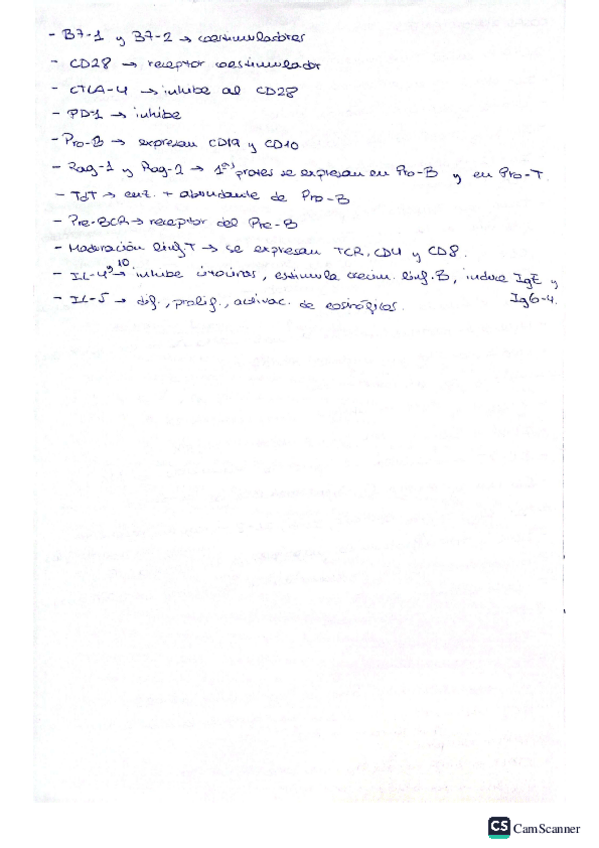 - B7-1 y B7-2 → coestimuladores
- CD28 → receptor coestimulador
- CTLA-4 → inhibe al CD28
- PD-1 → inhibe
- Pro-B → expresan CD19 y CD10
- Rag-1 y Rag-2 → 1as protes se expresan en Pro-B y en Pro-T.
- TdT → enz. + abundante de Pro-B
- Pre-BCR → receptor del Pre-B
- Maduración linf T → se expresan TCR, CD4 y CD8.
- IL-4 y 10 → inhibe citoinas, estimula crecim. linf. B, induce IgE y
IgG-4.
- IL-5 → dif., prolif., activac. de eosinófilos.
CS CamScanner